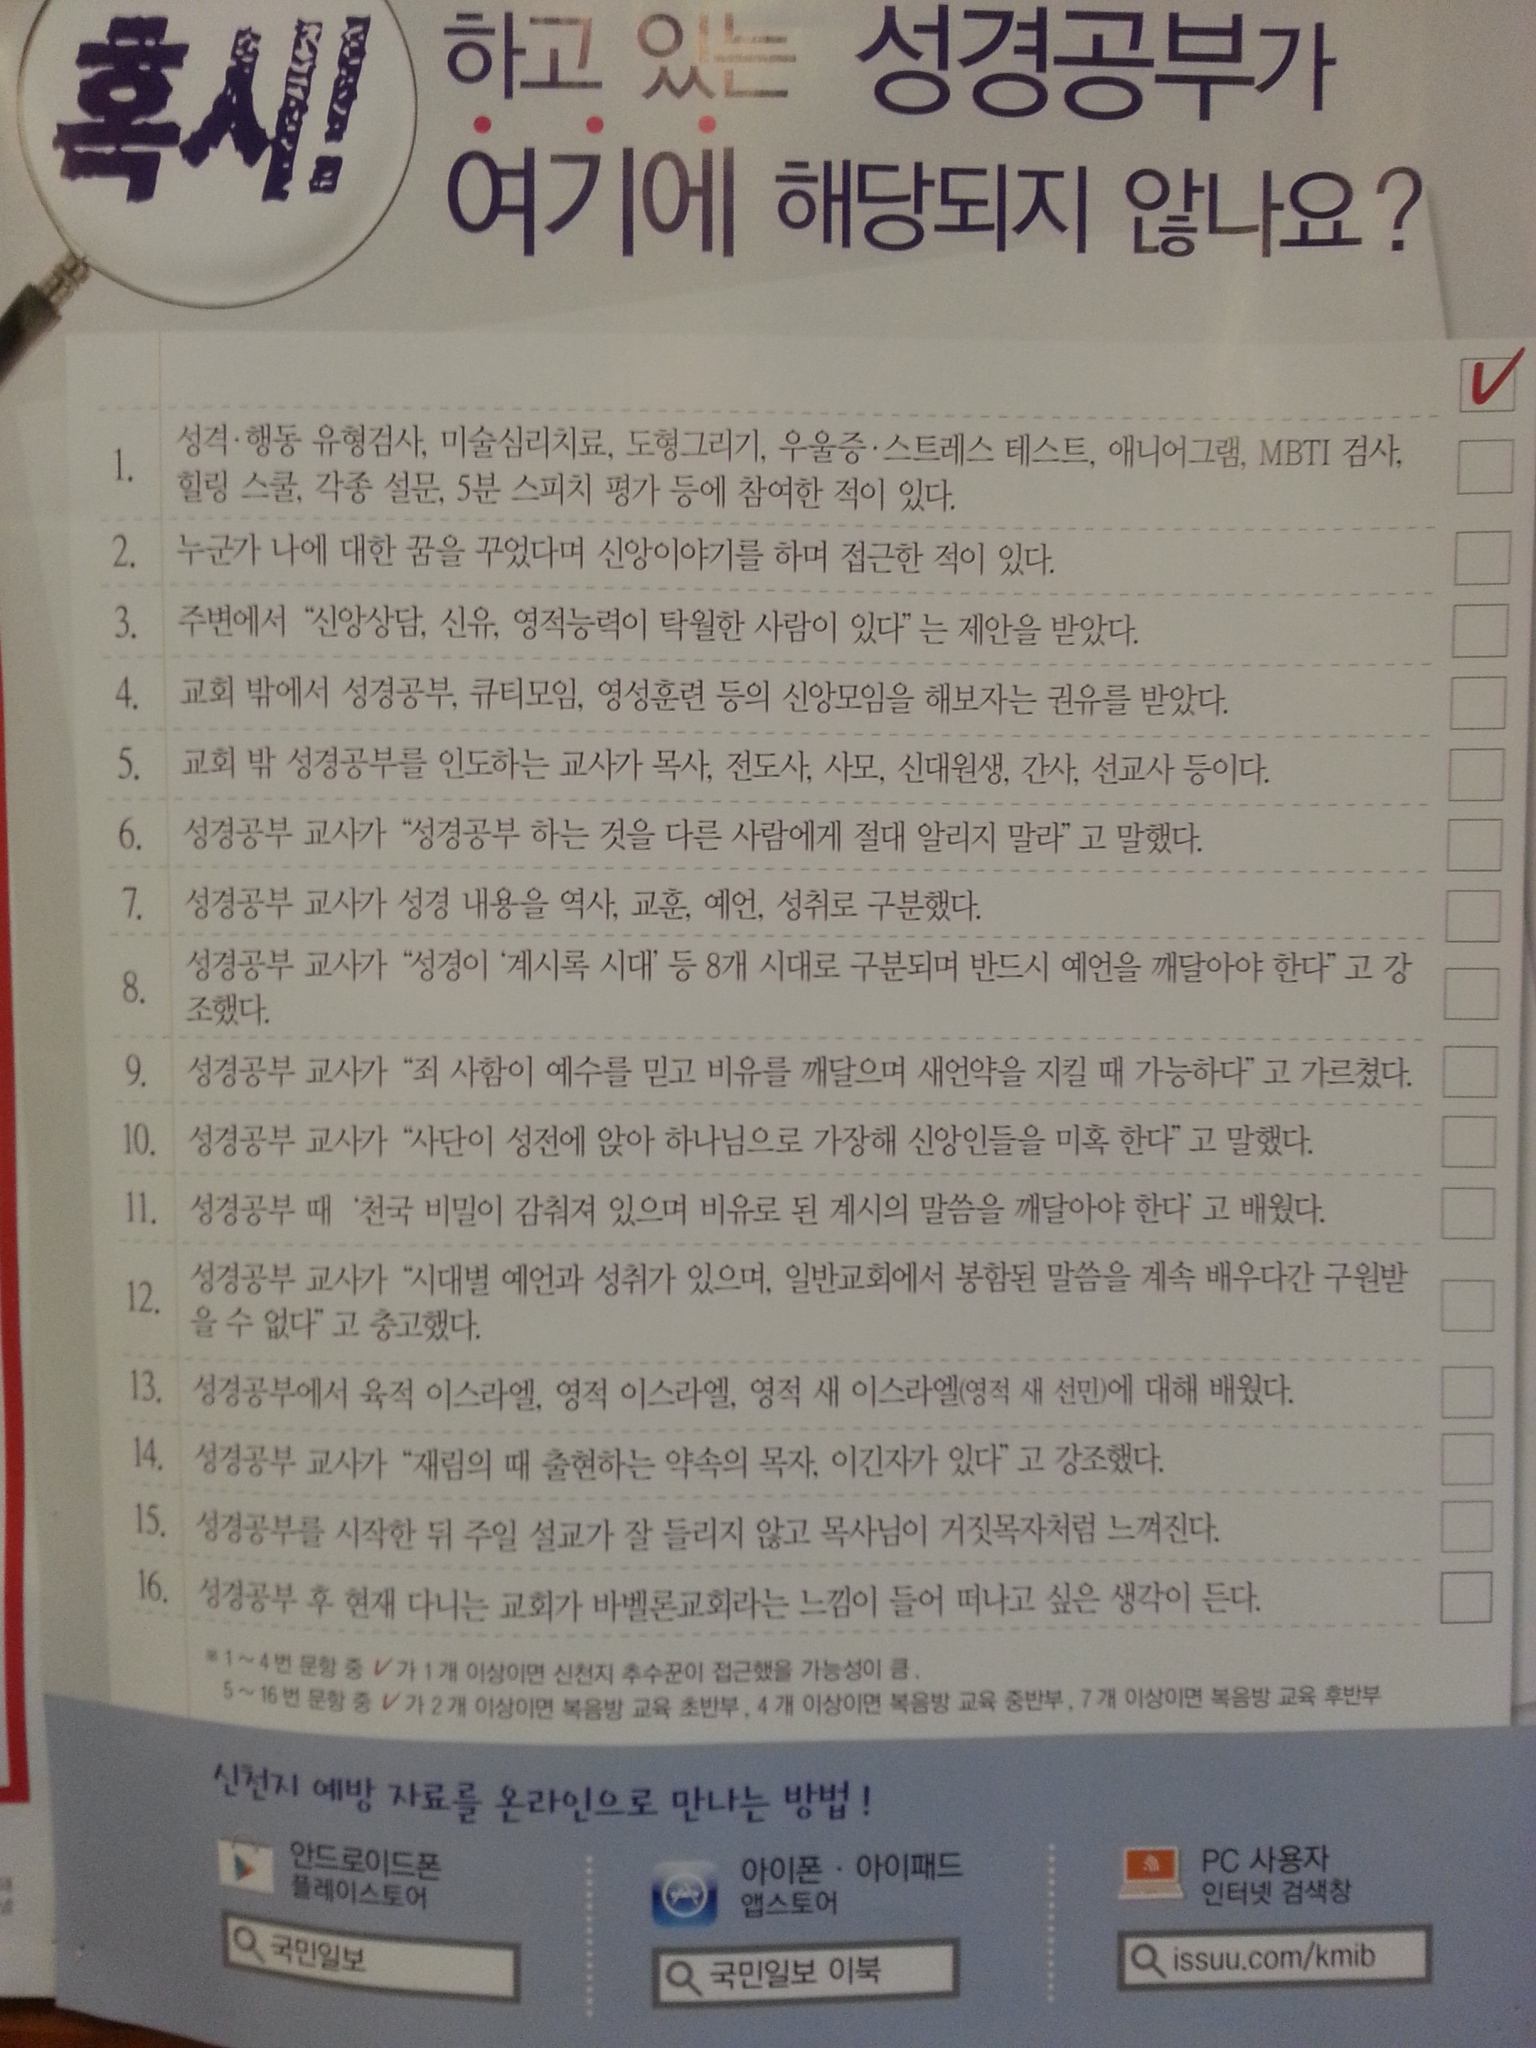 혹시!
하고 있는 성경공부가
여기에 해당되지 않나요?
1. 성격·행동 유형검사, 미술심리치료, 도형그리기, 우울증·스트레스 테스트, 애니어그램, MBTI 검사,
힐링 스쿨, 각종 설문, 5분 스피치 평가 등에 참여한 적이 있다.
2. 누군가 나에 대한 꿈을 꾸었다며 신앙이야기를 하며 접근한 적이 있다.
3. 주변에서 “신앙상담, 신유, 영적능력이 탁월한 사람이 있다”는 제안을 받았다.
4. 교회 밖에서 성경공부, 큐티모임, 영성훈련 등의 신앙모임을 해보자는 권유를 받았다.
5. 교회 밖 성경공부를 인도하는 교사가 목사, 전도사, 사모, 신대원생, 간사, 선교사 등이다.
6. 성경공부 교사가 “성경공부 하는 것을 다른 사람에게 절대 알리지 말라”고 말했다.
7. 성경공부 교사가 성경 내용을 역사, 교훈, 예언, 성취로 구분했다.
8. 성경공부 교사가 “성경이 ‘계시록 시대’ 등 8개 시대로 구분되며 반드시 예언을 깨달아야 한다”고 강
조했다.
9. 성경공부 교사가 “죄 사함이 예수를 믿고 비유를 깨달으며 새언약을 지킬 때 가능하다”고 가르쳤다.
10. 성경공부 교사가 “사단이 성전에 앉아 하나님으로 가장해 신앙인들을 미혹 한다”고 말했다.
11. 성경공부 때 ‘천국 비밀이 감춰져 있으며 비유로 된 계시의 말씀을 깨달아야 한다’고 배웠다.
12. 성경공부 교사가 “시대별 예언과 성취가 있으며, 일반교회에서 봉함된 말씀을 계속 배우다간 구원받
을 수 없다”고 충고했다.
13. 성경공부에서 육적 이스라엘, 영적 이스라엘, 영적 새 이스라엘(영적 새 선민)에 대해 배웠다.
14. 성경공부 교사가 “재림의 때 출현하는 약속의 목자, 이긴자가 있다”고 강조했다.
15. 성경공부를 시작한 뒤 주일 설교가 잘 들리지 않고 목사님이 거짓목자처럼 느껴진다.
16. 성경공부 후 현재 다니는 교회가 바벨론교회라는 느낌이 들어 떠나고 싶은 생각이 든다.
※ 1~4번 문항 중 ✓가 1개 이상이면 신천지 추수꾼이 접근했을 가능성이 큼.
5~16번 문항 중 ✓가 2개 이상이면 복음방 교육 초반부, 4개 이상이면 복음방 교육 중반부, 7개 이상이면 복음방 교육 후반부
신천지 예방 자료를 온라인으로 만나는 방법!
안드로이드폰
플레이스토어
국민일보
아이폰 · 아이패드
앱스토어
국민일보 이북
PC 사용자
인터넷 검색창
issuu.com/kmib